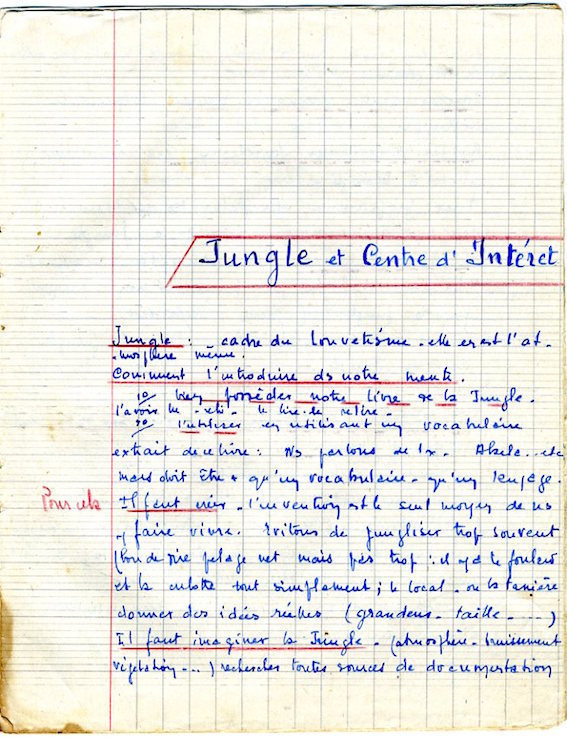 Jungle et Centre d'Intéret
Jungle : cadre du louvetisme - elle en est l'at-
-mosphère même.
Comment l'introduire ds notre meute.
1°/ bien posséder notre livre de la Jungle.
l'avoir lu - relu - le lire - le relire -
2°/ l'utiliser en utilisant un vocabulaire
extrait de ce livre : Ns parlons de Akela.. etc
mais doit être + qu'un vocabulaire - qu'un langage.
Pour cela
Il faut créer - l'invention est le seul moyen de ns
y faire vivre. Evitons de jungliser trop souvent
(bon de dire pelage net mais pas trop : il y a le foulard
et la culotte tout simplement ; le local - ou la tanière
donner des idées réelles (grandeur - taille - ....)
Il faut imaginer la Jungle - (atmosphère - bruissement
végétation ...) rechercher toutes sources de documentation